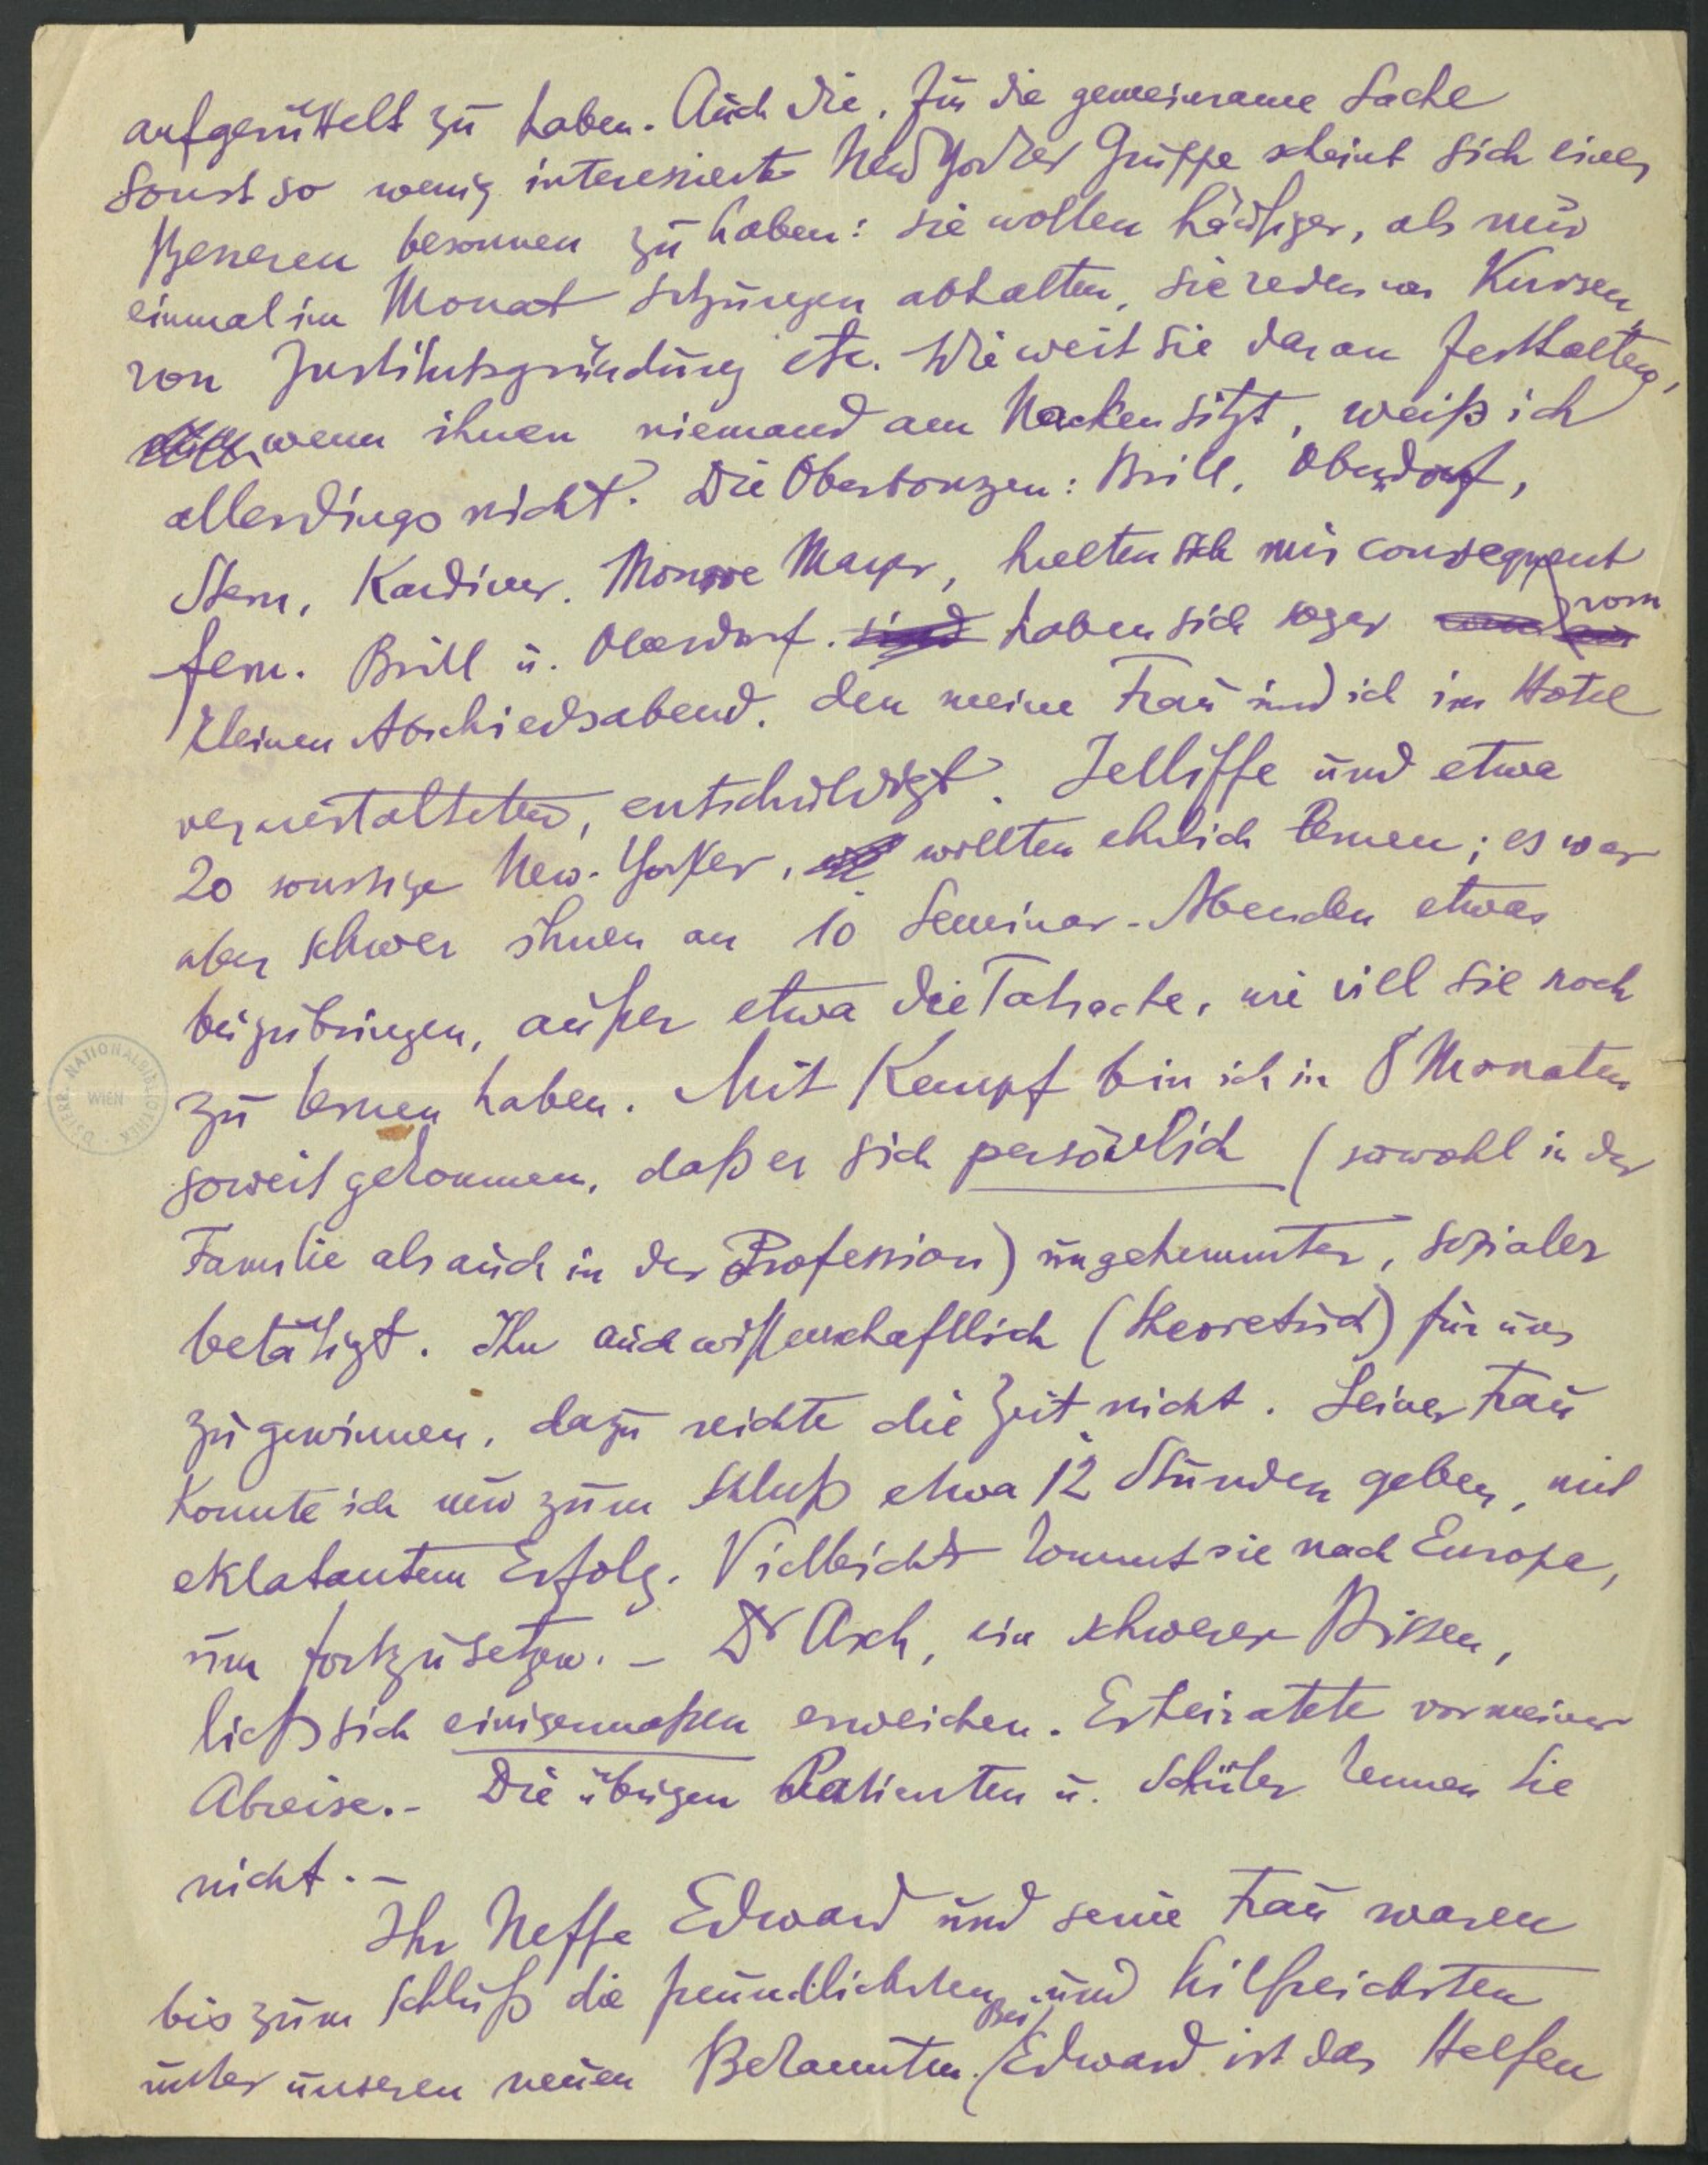 aufgerüttelt zu haben. Auch die, für die gemeinsame Sache
sonst so wenig interessierte New Yorker Gruppe scheint sich eines
Besseren besonnen zu haben: sie wollen häufiger, als nur
einmal im Monat Sitzungen abhalten, sie reden von Kursen,
von Institutsgründung etc. Wie weit sie daran festhalten,
wenn ihnen niemand am Nacken sitzt, weiß ich
allerdings nicht. Die Oberbonzen: Brill, Oberndorf,
Stern, Kardiner, Monroe Mayer, hielten sich mir consequent
fern. Brill u. Oberdorf. haben sich sogar vom
kleinen Abschiedsabend, den meine Frau und ich im Hotel
veranstalteten, entschuldigt. Jelliffe und etwa
20 sonstige New-Yorker, wollten ehrlich lernen; es war
aber schwer ihnen an 10 Seminar-Abenden etwas
beizubringen, außer etwa die Tatsache, wie viel sie noch
zu lernen haben. Mit Kempf bin ich in 8 Monaten
soweit gekommen, daß er sich persönlich (sowohl in der
Familie als auch in der Profession) ungehemmter, sozialer
betätigt. Ihn auch wissenschaftlich (theoretisch) für uns
zu gewinnen, dazu reichte die Zeit nicht. Seiner Frau
konnte ich nur zum Schluß etwa 12 Stunden geben, mit
eklatantem Erfolg. Vielleicht kommt sie nach Europa,
um fortzusetzen. – Dr Asch, ein schwerer Bissen,
ließ sich einigermaßen erweichen. Er heiratete vor meiner
Abreise. – Die übrigen Patienten u. Schüler kennen Sie
nicht. –
Ihr Neffe Edward und seine Frau waren
bis zum Schluß die freundlichsten und hilfreichsten
unter unseren neuen Bekannten. Bei Edward ist das Helfen
ÖSTERR. NATIONALBIBLIOTHEK WIEN